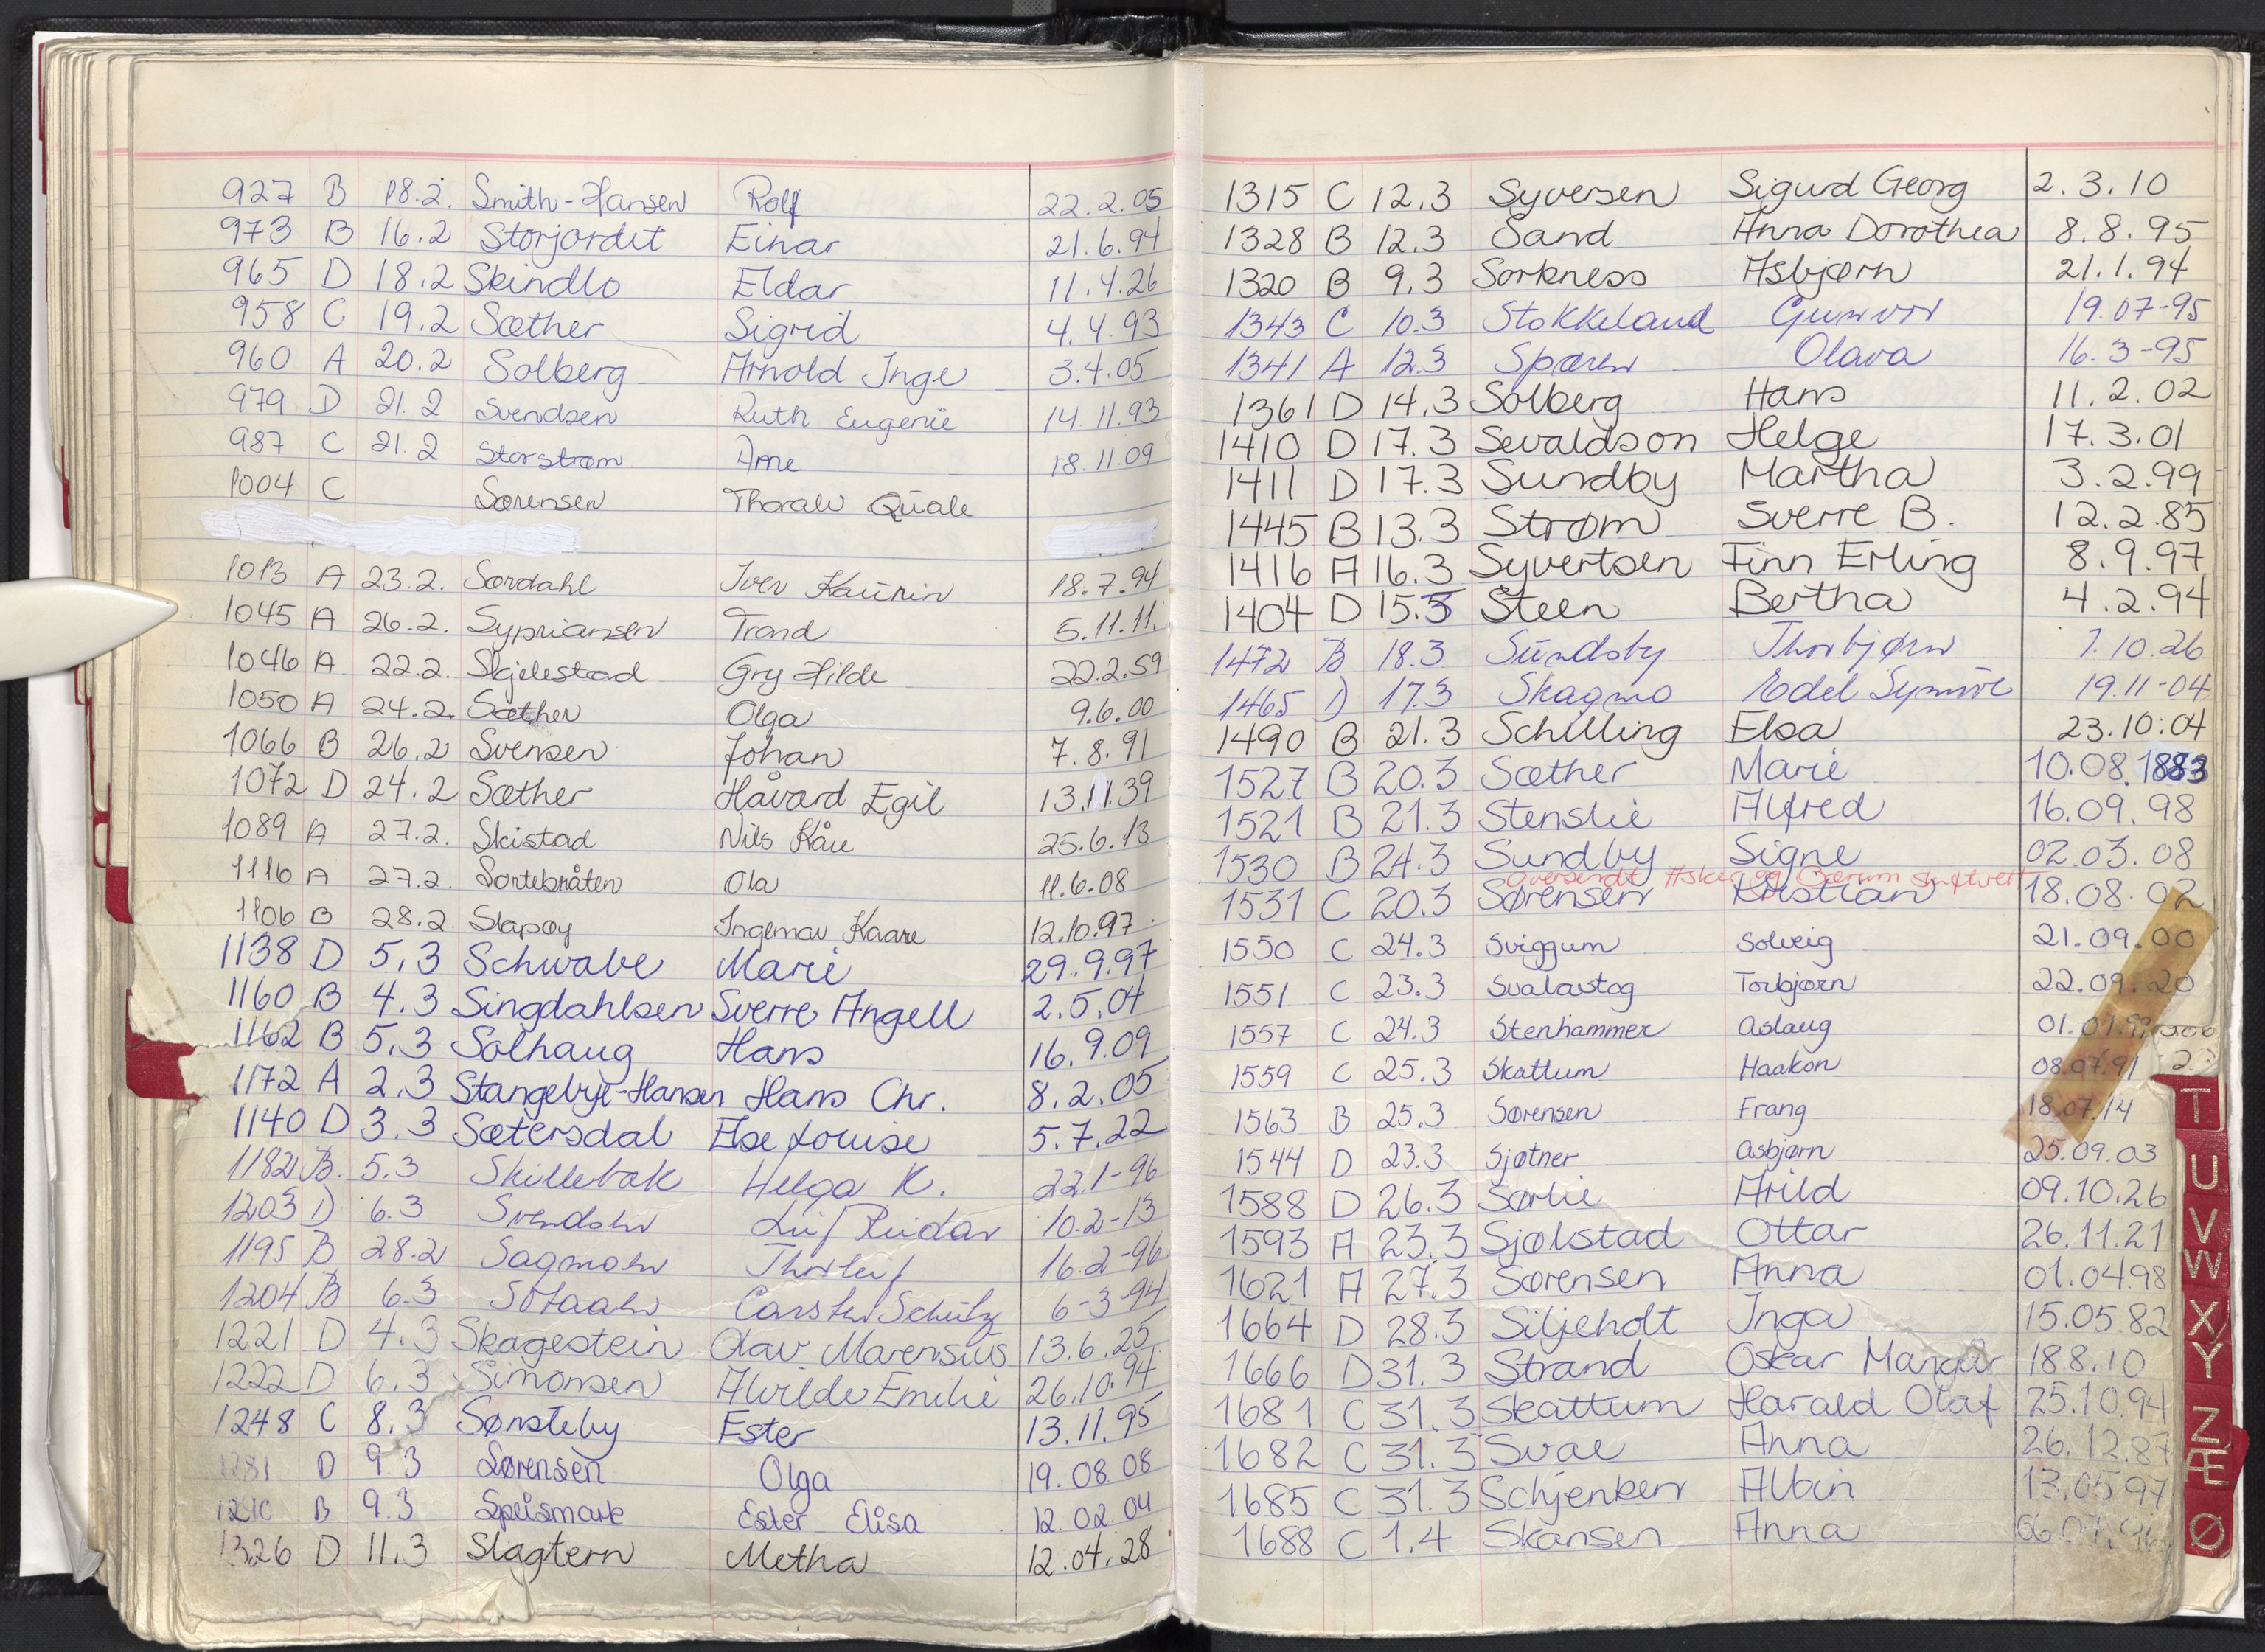 927 B 18.2. Smith-Hansen Rolf 22.2.05
973 B 16.2 Storjordet Einar 21.6.94
965 D 18.2 Skindlo Eldar 11.4.26
958 C 19.2 Sæther Sigrid 4.4.93
960 A 20.2 Solberg Arnold Inge 3.4.05
979 D 21.2 Svendsen Ruth Eugenie 14.11.93
987 C 21.2 Storstrøm Arne 18.11.09
1004 C Sørensen Thoralv Quale
1013 A 23.2. Sørdahl Iver Kaurin 18.7.94
1045 A 26.2. Sypriansen Trond 5.11.11.
1046 A 22.2. Skjelestad Gry Hilde 22.2.59
1050 A 24.2. Sæther Olga 9.6.00
1066 B 26.2 Svensen Johan 7.8.91
1072 D 24.2 Sæther Håvard Egil 13.11.39
1089 A 27.2. Skistad Nils Kåre 25.6.13
1116 A 27.2. Sortebråten Ola 11.6.08
1106 B 28.2. Slapøy Ingemar Kaare 12.10.97
1138 D 5.3 Schwabe Marie 29.9.97
1160 B 4.3 Singdahlsen Sverre Angell 2.5.04
1162 B 5.3 Solhaug Hans 16.9.09
1172 A 2.3 Stangebye-Hansen Hans Chr. 8.2.05
1140 D 3.3 Sætersdal Else Louise 5.7.22
1182 B. 5.3 Skillebæk Helga K. 22.1-96
1203 D 6.3 Svendsen Leif Reidar 10.2-13
1195 B 28.2 Sagmoen Thorleif 16.2-96
1204 B 6.3 Carsten Schutz 6-3-94
1221 D 4.3 Skagestein Olav Marensius 13.6.25
1222 D 6.3 Simonsen Alvilde Emilie 26.10.94
1248 C 8.3 Sønsteby Ester 13.11.95
1281 D 9.3 Sørensen Olga 19.08.08
1290 B 9.3 Speismark Ester Elisa 12.02.04
1326 D 11.3 Slagtern Metha 12.04.28
1315 C 12.3 Syversen Sigurd Georg 2.3.10
1328 B 12.3 Sand Anna Dorothea 8.8.95
1320 B 9.3 Sorkness Asbjørn 21.1.94
1343 C 10.3 Stokkeland Gunvor 19.07-95
1341 A 12.3 Spæren Olava 16.3-95
1361 D 14.3 Solberg Hans 11.2.02
1410 D 17.3 Sevaldson Helge 17.3.01
1411 D 17.3 Sundby Martha 3.2.99
1445 B 13.3 Strøm Sverre B. 12.2.85
1416 A 16.3 Syvertsen Finn Erling 8.9.97
1404 D 15.3 Steen Bertha 4.2.94
1472 B 18.3 Sundsby Thorbjørn 7.10.26
1465 D 17.3 Skagmo Edel Synnøve 19.11-04
1490 B 21.3 Schilling Elsa 23.10.04
1527 B 20.3 Sæther Marie 10.08.1883
1521 B 21.3 Stenslie Alfred 16.09.98
1530 B 24.3 Sundby Signe 02.03.08
Oversendt Asker og Bærum skifterett
1531 C 20.3 Sørensen Kristian 18.08.02
1550 C 24.3 Sviggum Solveig 21.09.00
1551 C 23.3 Svalastog Torbjørn 22.09.20
1557 C 24.3 Stenhammer Aslaug
1559 C 25.3 Skattum Haakon 08.07.91
1563 B 25.3 Sørensen Frang 18.07.14
1544 D 23.3 Sjøtner Asbjørn 25.09.03
1588 D 26.3 Sørlie Arild 09.10.26
1593 A 23.3 Sjølstad Ottar 26.11.21
1621 A 27.3 Sørensen Anna 01.04.98
1664 D 28.3 Siljeholt Inga 15.05.82
1666 D 31.3 Strand Oskar Mangår 18.8.10
1681 C 31.3 Skattum Harald Olaf 25.10.94
1682 C 31.3 Svae Anna 26.12.87
1685 C 31.3 Schjenken Albin 13.05.97
1688 C 1.4 Skansen Anna
T
U
V
W
X
Y
Z
Æ
Ø